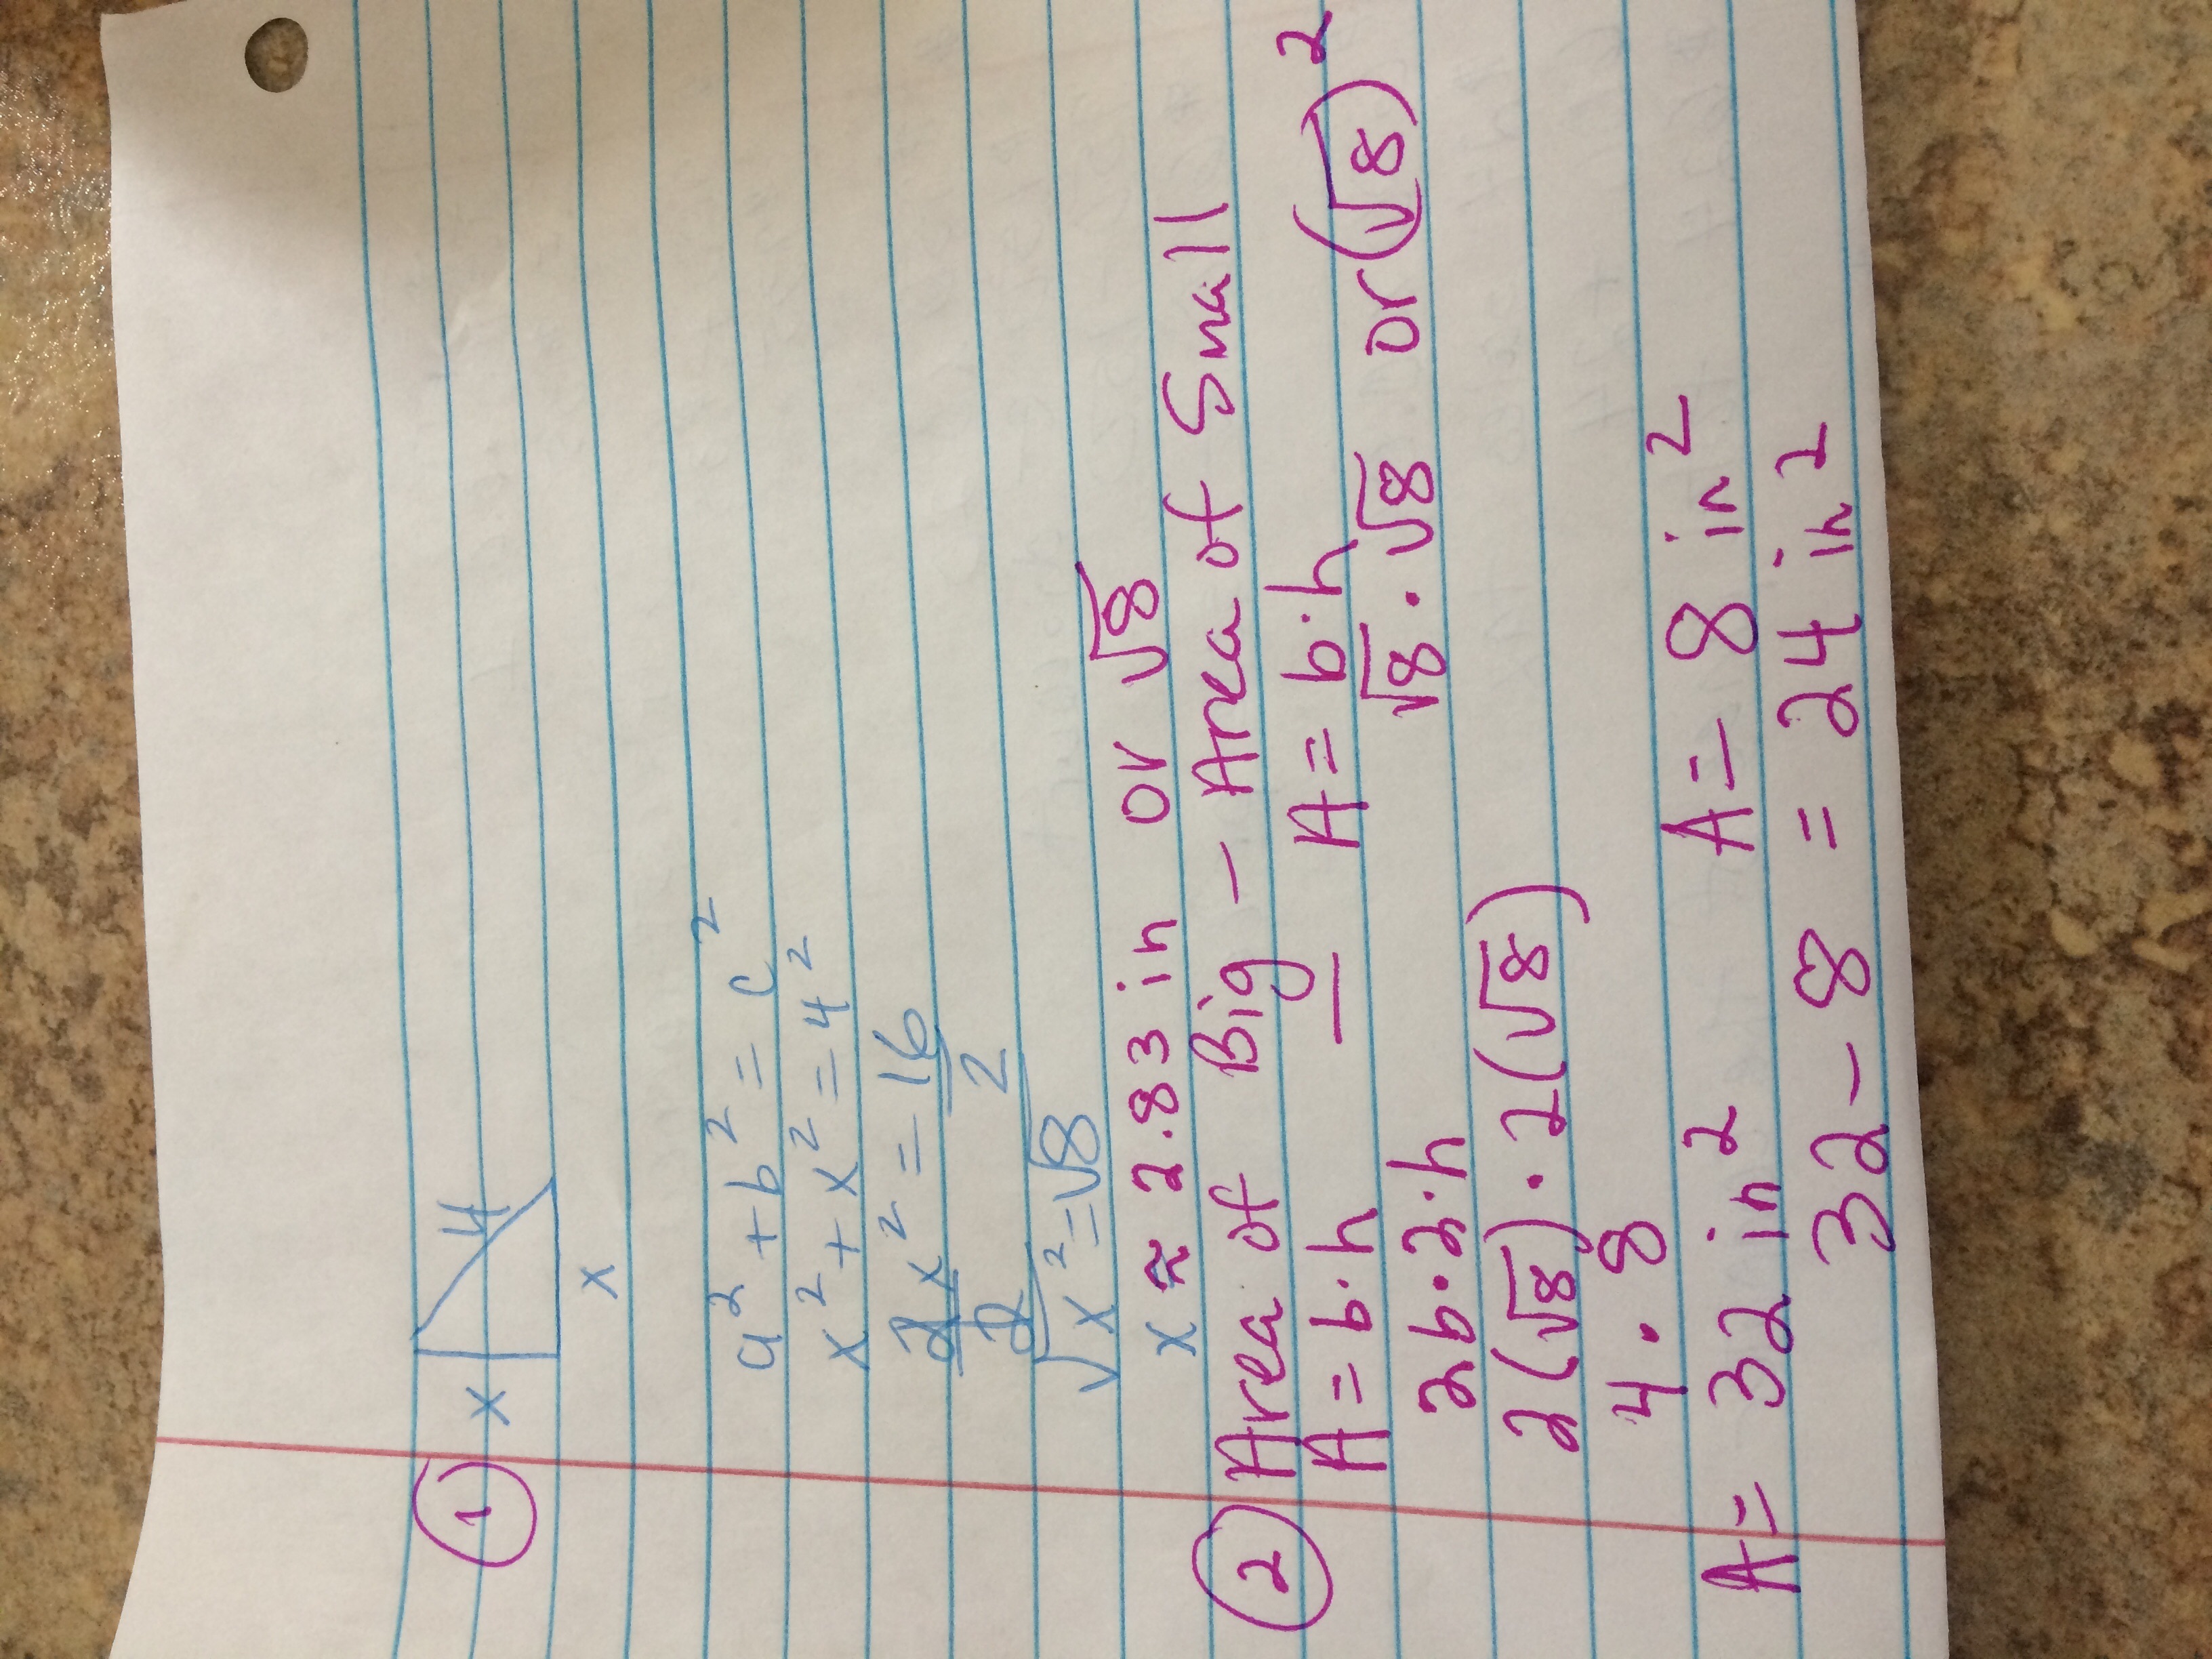 ① x 4
x
a² + b² = c²
x² + x² = 4²
2x² = 16
2 2
√x² = √8
x ≈ 2.83 in or √8
② Area of Big - Area of Small
A = b·h — A = b·h
2b·2·h √8 · √8 or (√8)²
2(√8) · 2(√8)
4 · 8
A = 32 in² A = 8 in²
32 - 8 = 24 in²